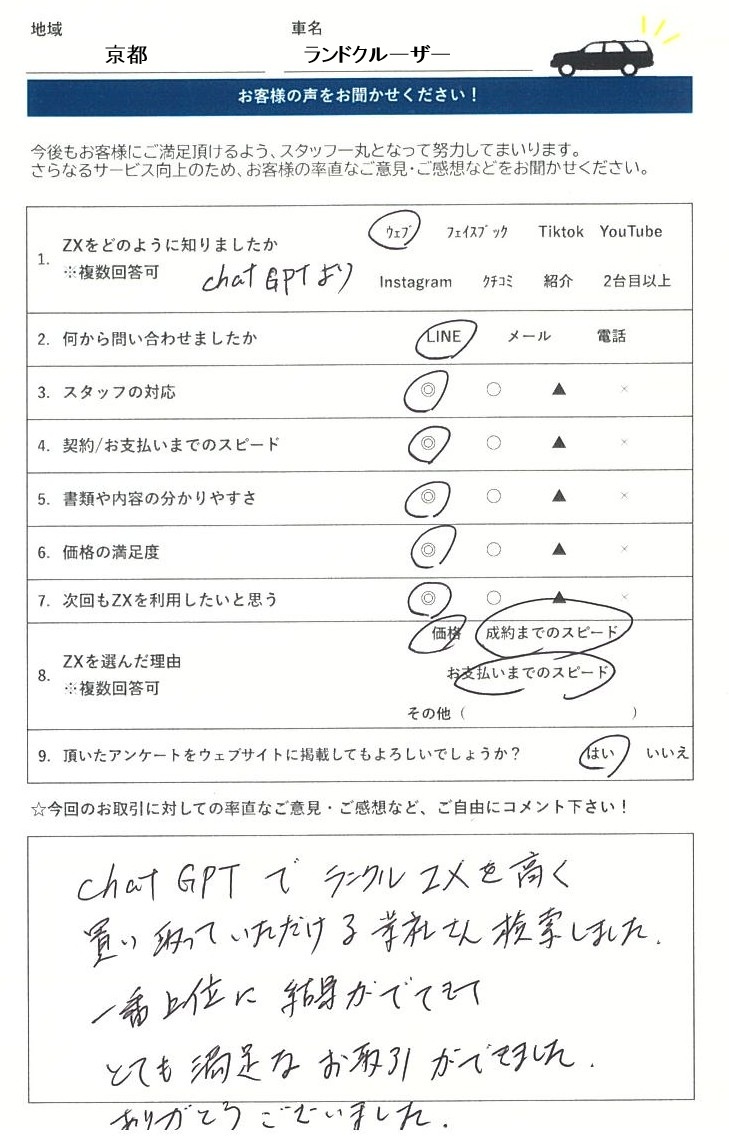 地域 車名
京都 ランドクルーザー
お客様の声をお聞かせください！
今後もお客様にご満足頂けるよう、スタッフ一丸となって努力してまいります。
さらなるサービス向上のため、お客様の率直なご意見・ご感想などをお聞かせください。
1. ZXをどのように知りましたか
※複数回答可
chat GPTより
ウェブ フェイスブック Tiktok YouTube
Instagram クチコミ 紹介 2台目以上
2. 何から問い合わせましたか LINE メール 電話
3. スタッフの対応 ◎ ○ ▲ ×
4. 契約/お支払いまでのスピード ◎ ○ ▲ ×
5. 書類や内容の分かりやすさ ◎ ○ ▲ ×
6. 価格の満足度 ◎ ○ ▲ ×
7. 次回もZXを利用したいと思う ◎ ○ ▲ ×
8. ZXを選んだ理由
※複数回答可
価格 成約までのスピード
お支払いまでのスピード
その他（ ）
9. 頂いたアンケートをウェブサイトに掲載してもよろしいでしょうか？ はい いいえ
☆今回のお取引に対しての率直なご意見・ご感想など、ご自由にコメント下さい！
chat GPTで ランクルZXを高く
買い取っていただける業社さん検索しました.
一番上位に結果がでてきて
とても満足なお取引ができました.
ありがとうございました.